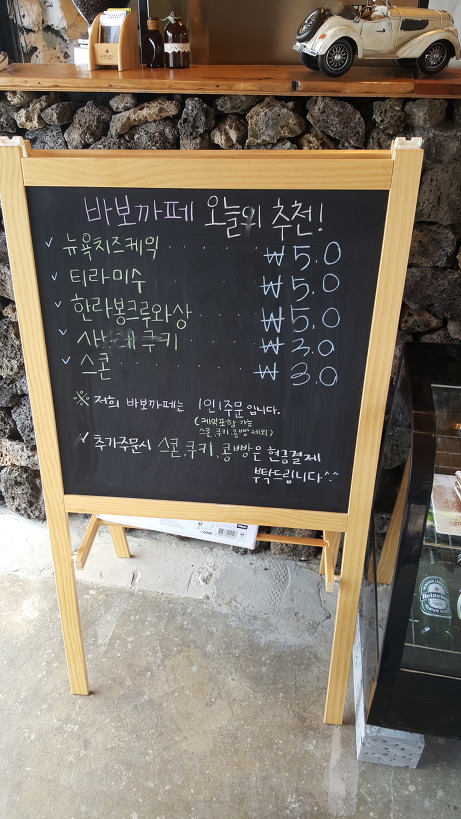 바보까페 오늘의 추천!
✓ 뉴욕치즈케익 ₩5.0
✓ 티라미수 ₩5.0
✓ 한라봉크루와상 ₩5.0
✓ 쿠키 ₩3.0
✓ 스콘 ₩3.0
※ 저희 바보까페는 1인1주문입니다.
(케익포함 가능
스콘,쿠키,콩빵 제외)
✓ 추가주문시 스콘,쿠키,콩빵은 현금결제
부탁드립니다^.^
Heineken